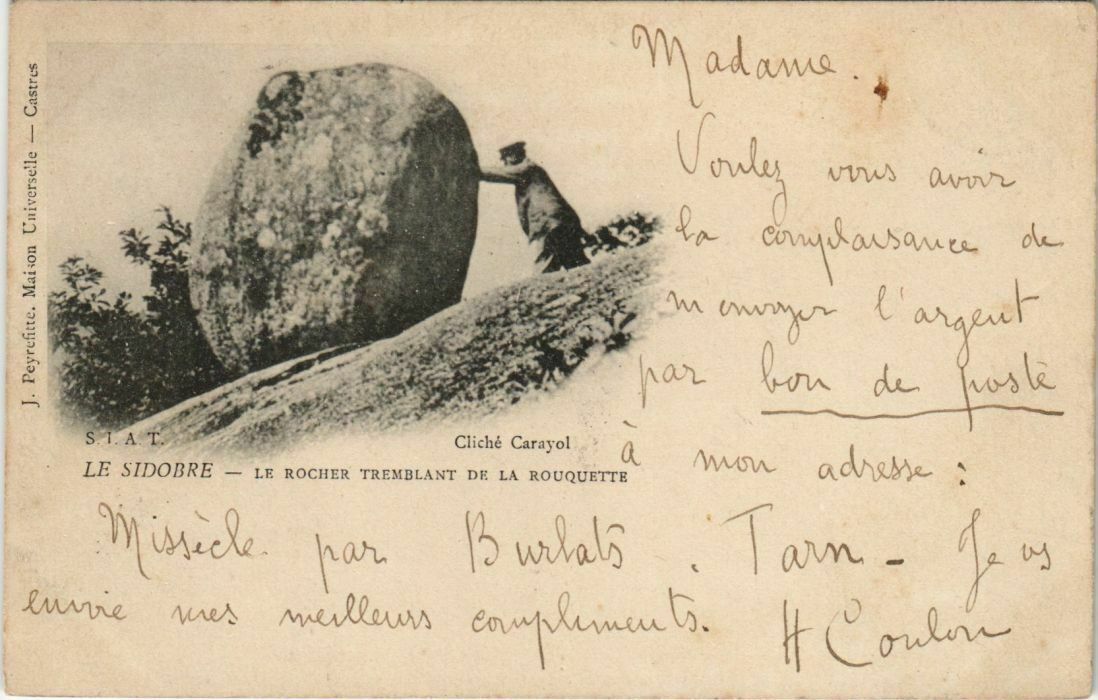 J. Peyrefitte. Maison Universelle — Castres
S. I. A. T.
Cliché Carayol
LE SIDOBRE — LE ROCHER TREMBLANT DE LA ROUQUETTE
Madame.
Voulez vous avoir
la complaisance de
m'envoyer l'argent
par bon de poste
à mon adresse :
Missècle par Burlats. Tarn - Je vs
envoie mes meilleurs compliments.
H Coulon